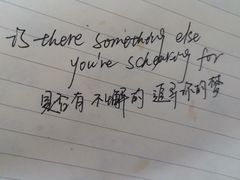 is there something else
you're schearing for
是否有不解的 追寻你的梦